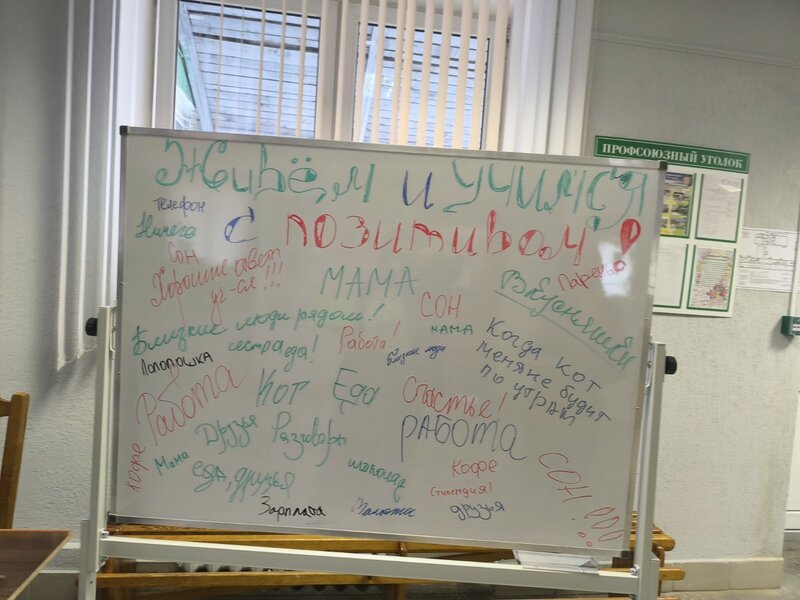 Живём и учимся
с позитивом!
ПРОФСОЮЗНЫЙ УГОЛОК
Телефон
Ничего
Сон
Хорошие ответ
уч-ся!!!
МАМА
СОН
Парень
Вкусняшки
Близкие люди рядом!
сестра еда!
Работа!
мама
Близкие люди
Когда кот
меня не будит
по утрам
Лопопошка
Работа
Кот
Еда
Счастье!
РАБОТА
Друзья
Разговоры
кофе
Мама
еда, друзья
шоколад
Кофе
Стипендия!
друзья
СОН!!!
Зарплата